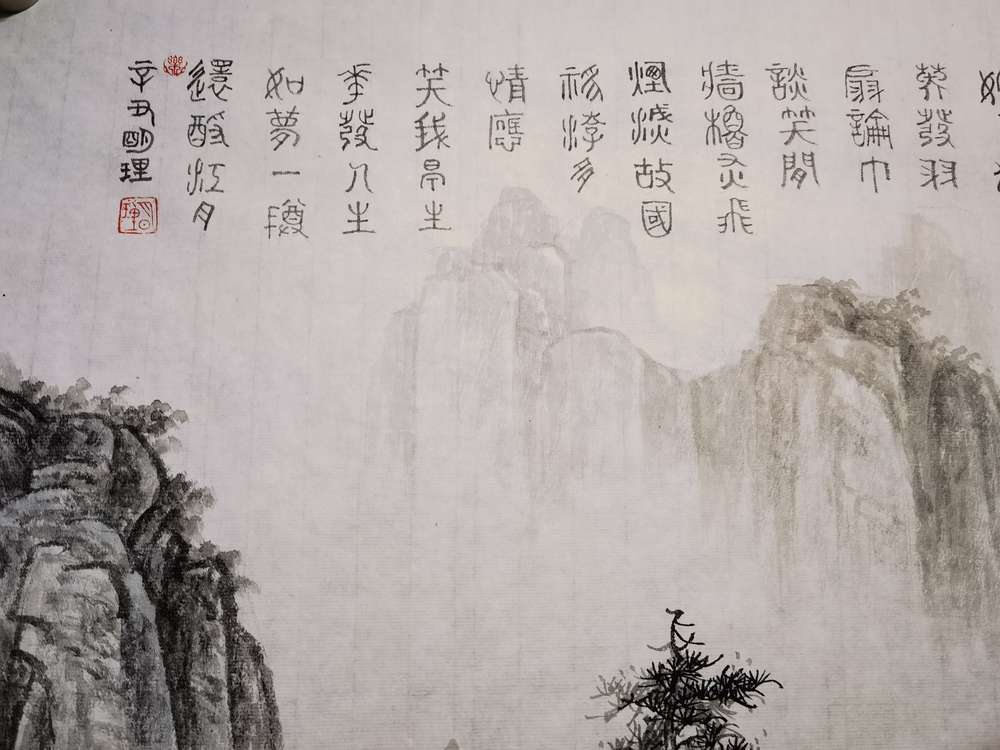 英發羽
扇論巾
談笑間
牆櫓灰飛
煙滅故國
神游多
情應
笑我早生
華發人生
如夢一樽
還酹江月
辛丑明理
明理